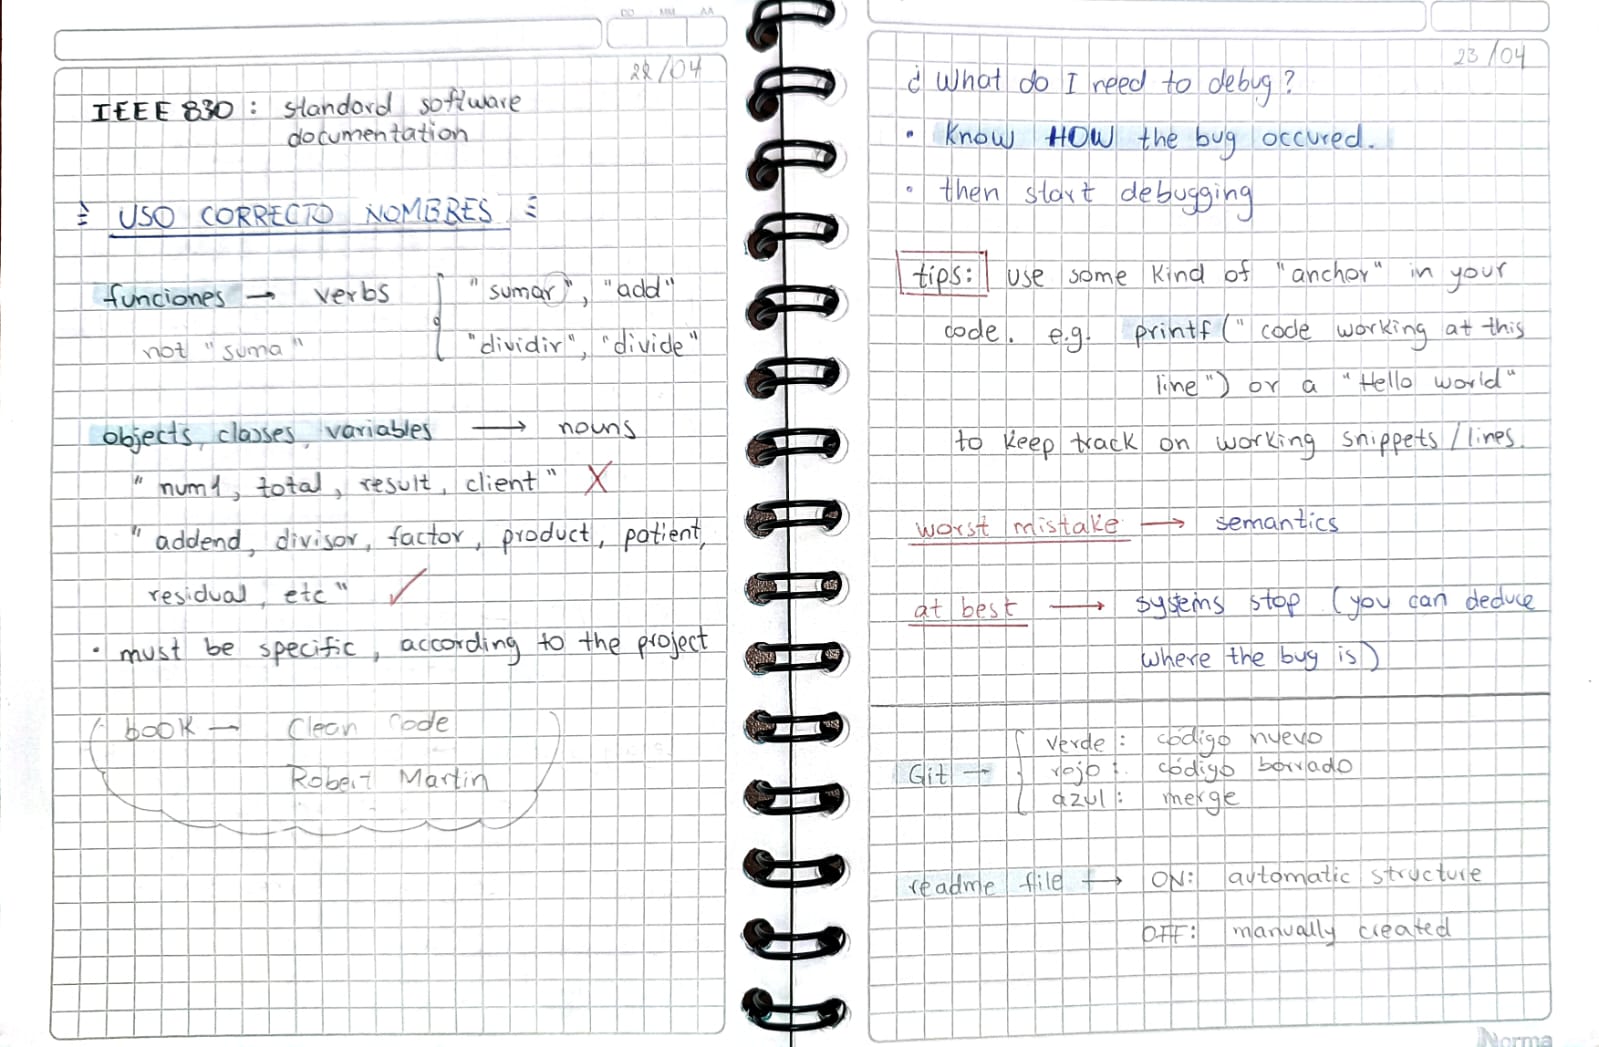 DD MM AA
22/04
IEEE 830: standard software
documentation
USO CORRECTO NOMBRES
funciones → verbs { "sumar", "add"
not "suma" "dividir", "divide"
objects, classes, variables → nouns
" num1, total, result, client" X
" addend, divisor, factor, product, patient,
residual, etc" ✓
• must be specific, according to the project
(book → Clean Code
Robert Martin)
23/04
¿ What do I need to debug?
• Know HOW the bug occured.
• then start debugging
tips: use some kind of "anchor" in your
code. e.g. printf(" code working at this
line") or a "Hello world"
to keep track on working snippets / lines.
worst mistake → semantics
at best → systems stop (you can deduce
where the bug is)
verde: código nuevo
Git → { rojo: código borrado
azul: merge
readme file → ON: automatic structure
OFF: manually created
Norma